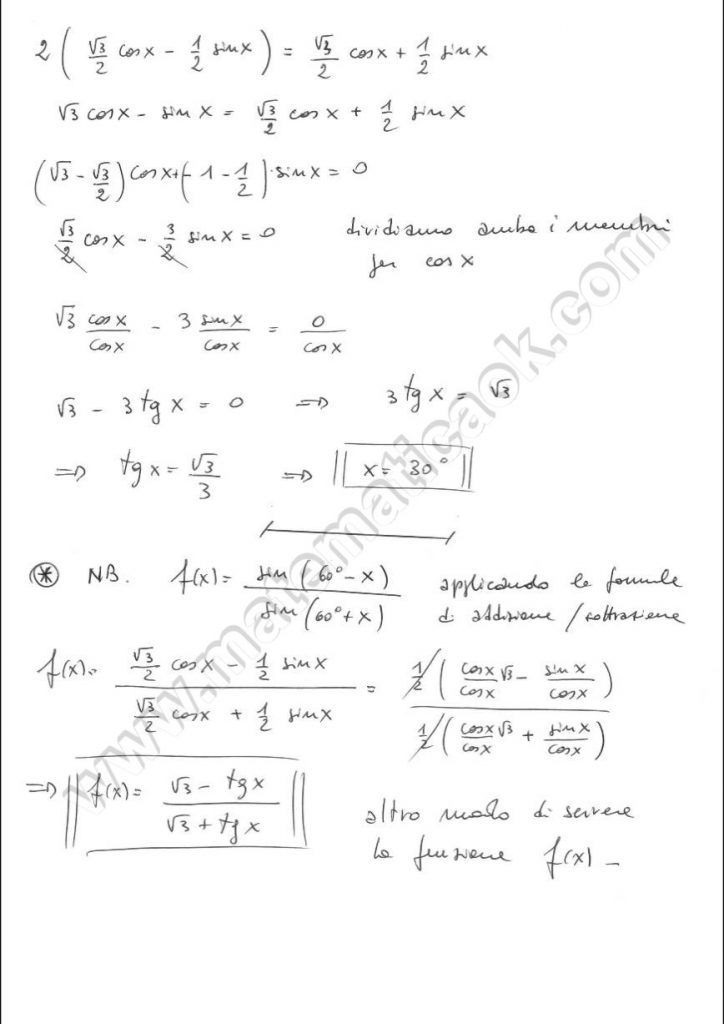 2 ( √3/2 cos x - 1/2 sin x ) = √3/2 cos x + 1/2 sin x
√3 cos x - sin x = √3/2 cos x + 1/2 sin x
(√3 - √3/2) cos x + (- 1 - 1/2) · sin x = 0
√3/2 cos x - 3/2 sin x = 0 dividiamo ambo i membri
per cos x
√3 cos x/cos x - 3 sin x/cos x = 0/cos x
√3 - 3 tg x = 0 => 3 tg x = √3
=> tg x = √3/3 => || x = 30° ||
(*) NB. f(x) = sin (60° - x)/sin (60° + x) applicando le formule
di addizione / sottrazione
f(x) = (√3/2 cos x - 1/2 sin x)/(√3/2 cos x + 1/2 sin x) = 1/2 ( cos x/cos x √3 - sin x/cos x )/1/2 ( cos x/cos x √3 + sin x/cos x )
=> || f(x) = (√3 - tg x)/(√3 + tg x) || altro modo di scrivere
la funzione f(x) -
www.matematicaok.com